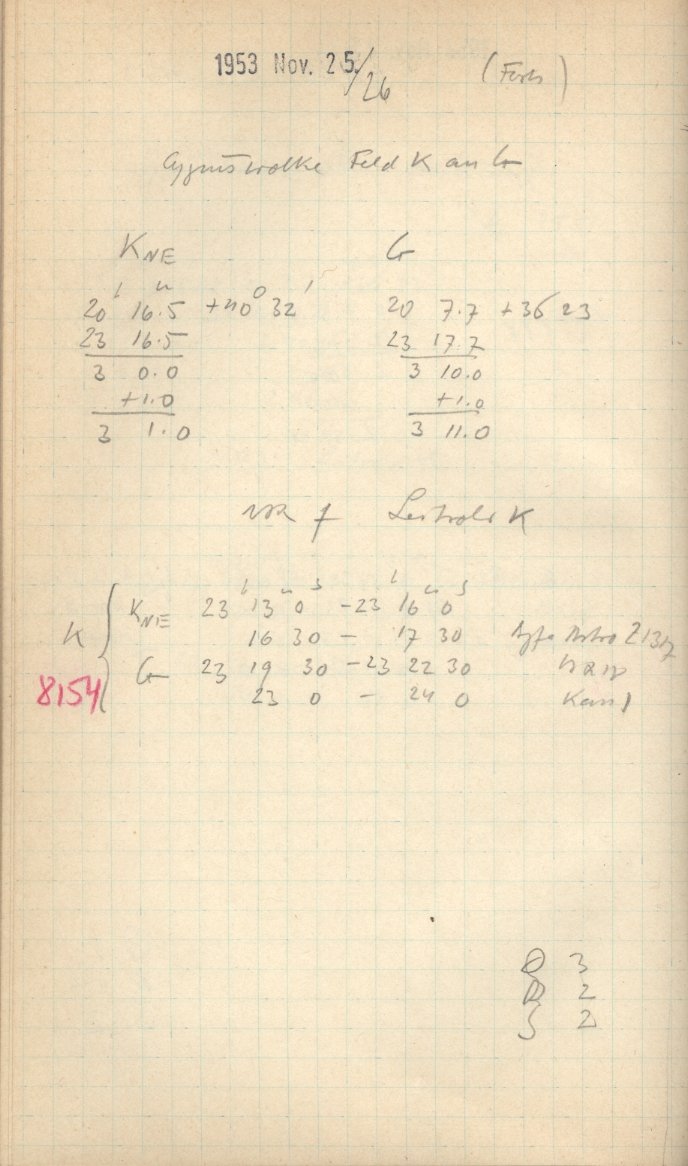 1953 Nov. 25./26 (Forts)
Cygnuswolke Feld K an G
K NE G
20 h 16.5 m +40° 32' 20 7.7 +36 23
23 16.5 23 17.7
3 0.0 3 10.0
+1.0 +1.0
3 1.0 3 11.0
f K
K NE 23 h 13 m 0 s - 23 h 16 m 0 s
16 30 - 17 30 Agfa Astro Z
K G 23 19 30 - 23 22 30
8154 23 0 - 24 0
3
2
S 2